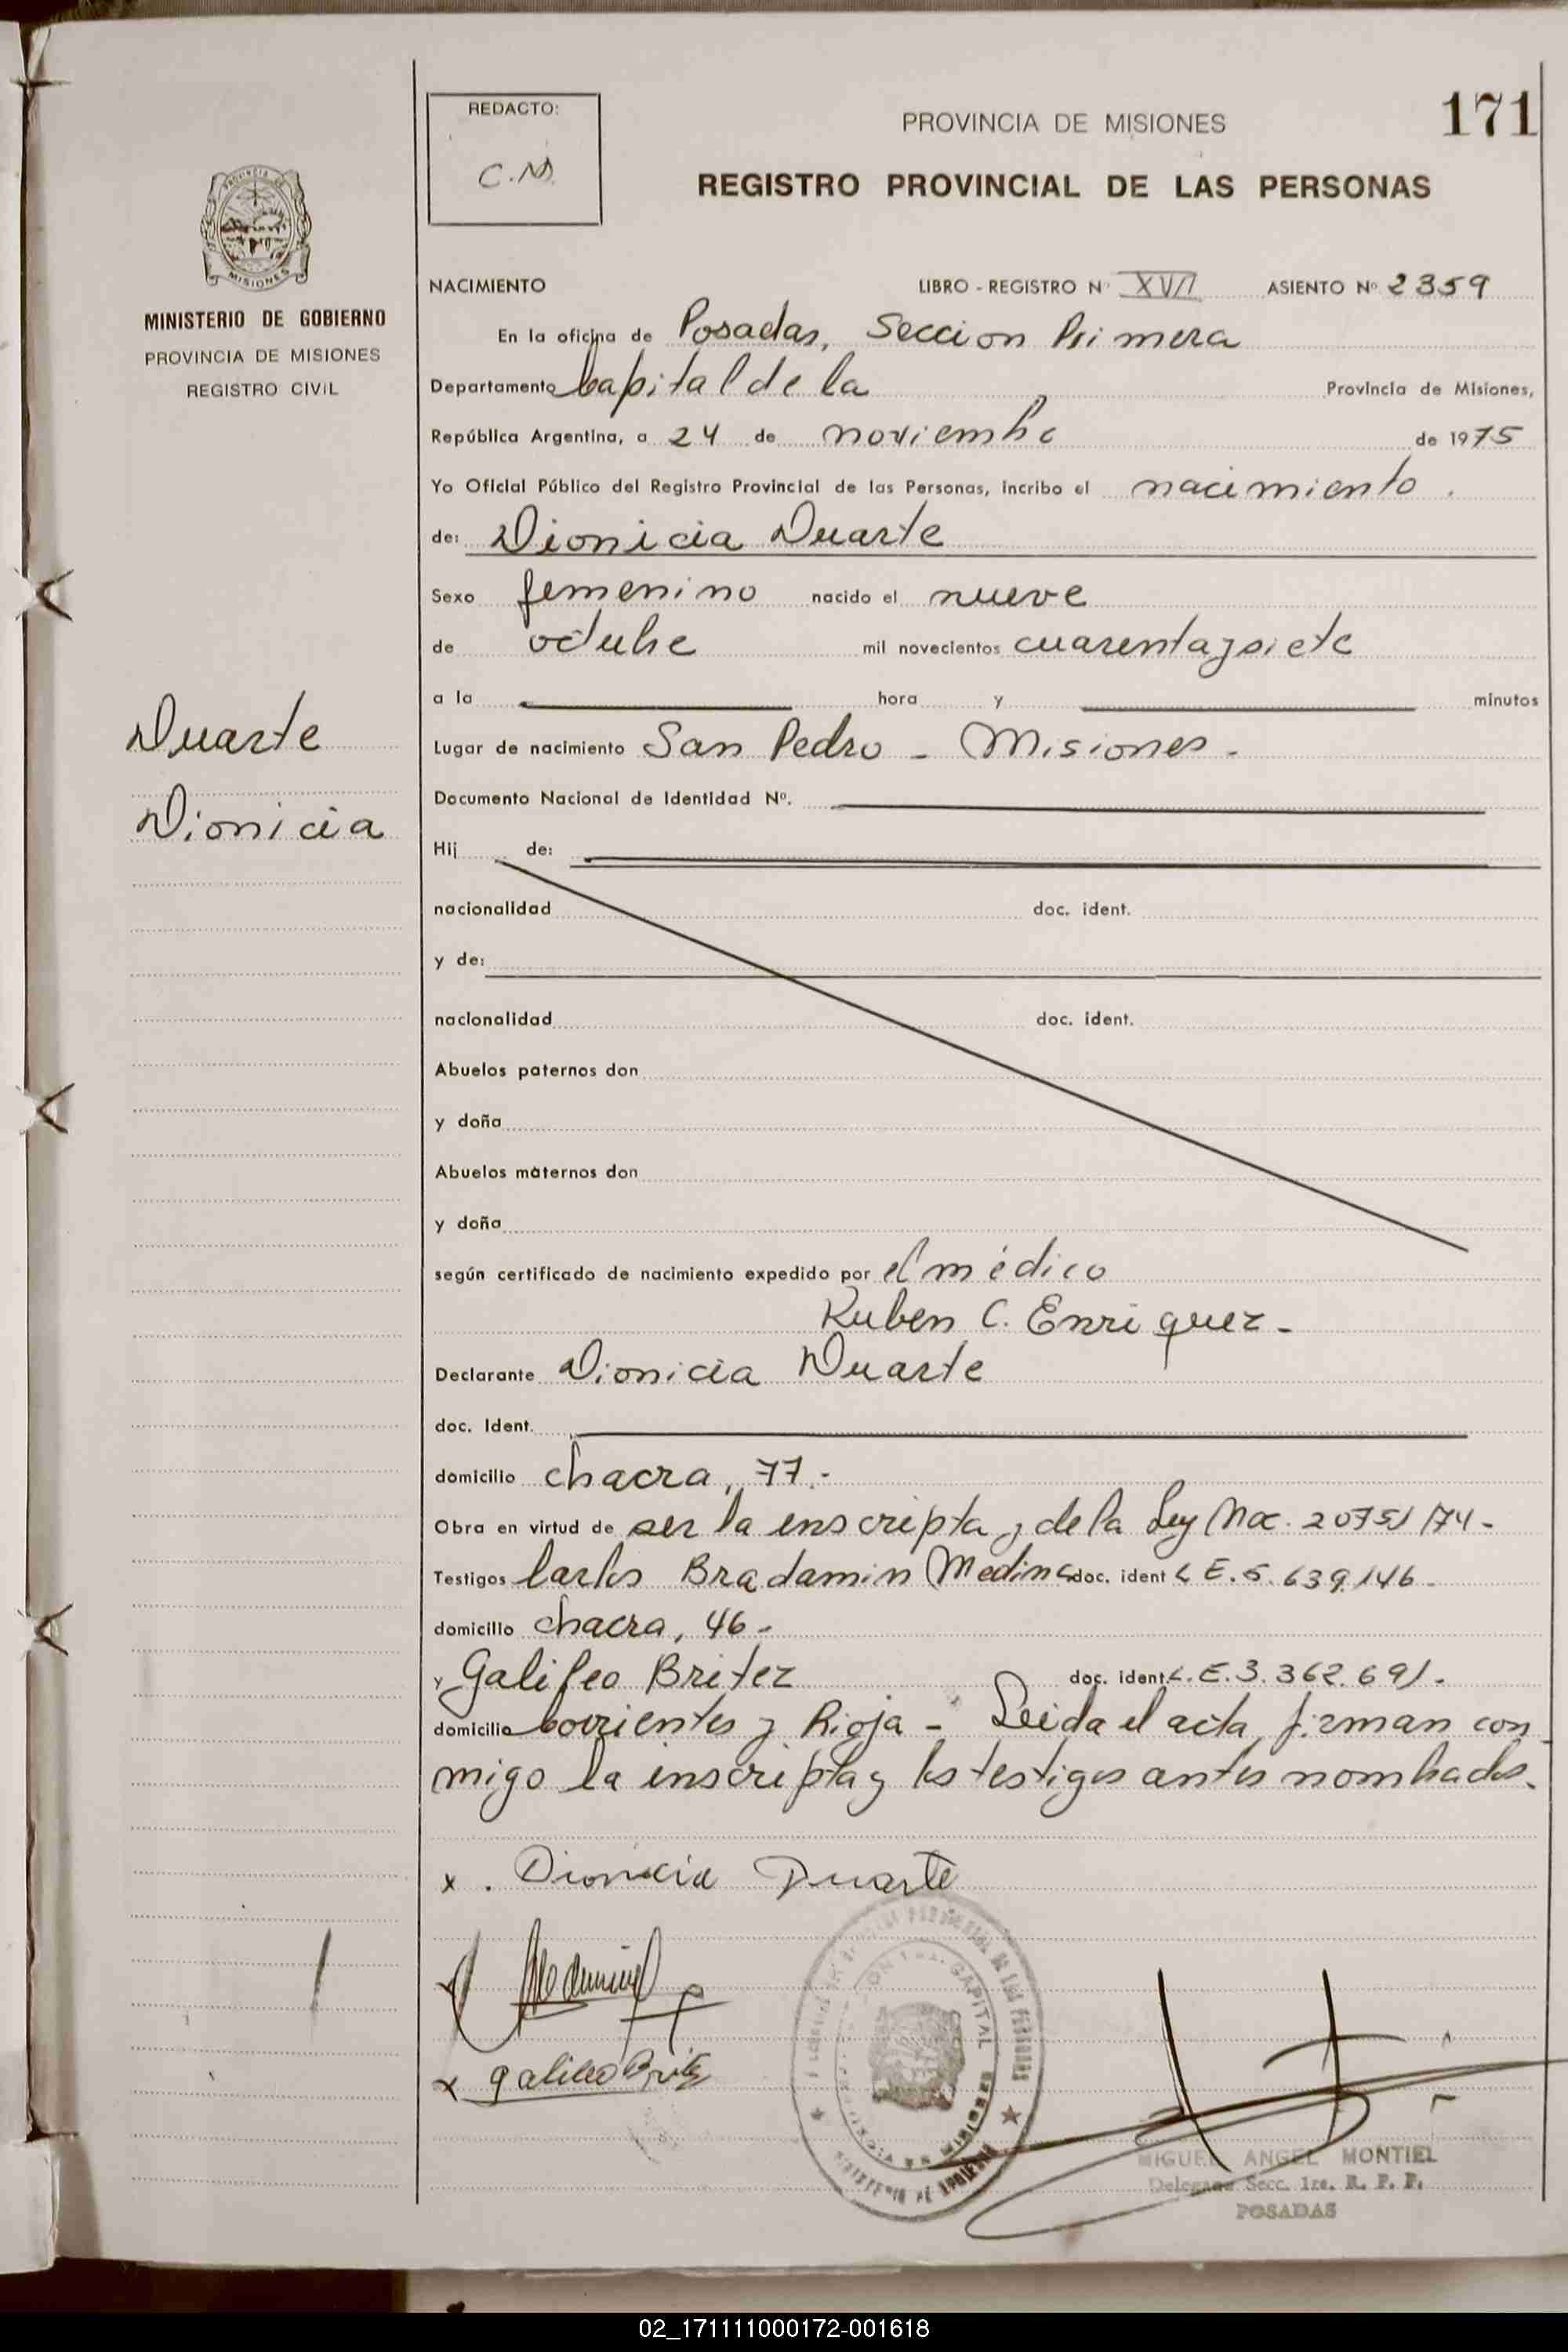 REDACTO:
C.M.
PROVINCIA DE MISIONES
171
REGISTRO PROVINCIAL DE LAS PERSONAS
MISIONES
MINISTERIO DE GOBIERNO
PROVINCIA DE MISIONES
REGISTRO CIVIL
NACIMIENTO LIBRO - REGISTRO Nº XVII ASIENTO Nº 2359
En la oficina de Posadas, Seccion Primera
Departamento Capital de la Provincia de Misiones,
República Argentina, a 24 de noviembre de 1975
Yo Oficial Público del Registro Provincial de las Personas, incribo el nacimiento.
de: Dionicia Duarte
Sexo femenino nacido el nueve
de octubre mil novecientos cuarenta y siete
a la hora y minutos
Duarte
Lugar de nacimiento San Pedro - Misiones -
Documento Nacional de Identidad Nº.
Dionicia
Hij de:
nacionalidad doc. ident.
y de:
nacionalidad doc. ident.
Abuelos paternos don
y doña
Abuelos maternos don
y doña
según certificado de nacimiento expedido por el médico
Ruben C. Enriquez -
Declarante Dionicia Duarte
doc. Ident.
domicilio chacra, 77.-
Obra en virtud de ser la inscripta y de la Ley Nac. 20751/74-
Testigos Carlos Bradamin Medina doc. ident L E. 5.639.146-
domicilio chacra, 46-
y Galileo Britez doc. ident L.E. 3.362.691.
domicilio Corrientes y Rioja - Leida el acta, firman con
migo la inscripta y los testigos antes nombrados.
x . Dionicia Duarte
x Galileo Britez
CAPITAL
MIGUEL ANGEL MONTIEL
Delegado Secc. 1ra. R. P. P.
POSADAS
02_171111000172-001618